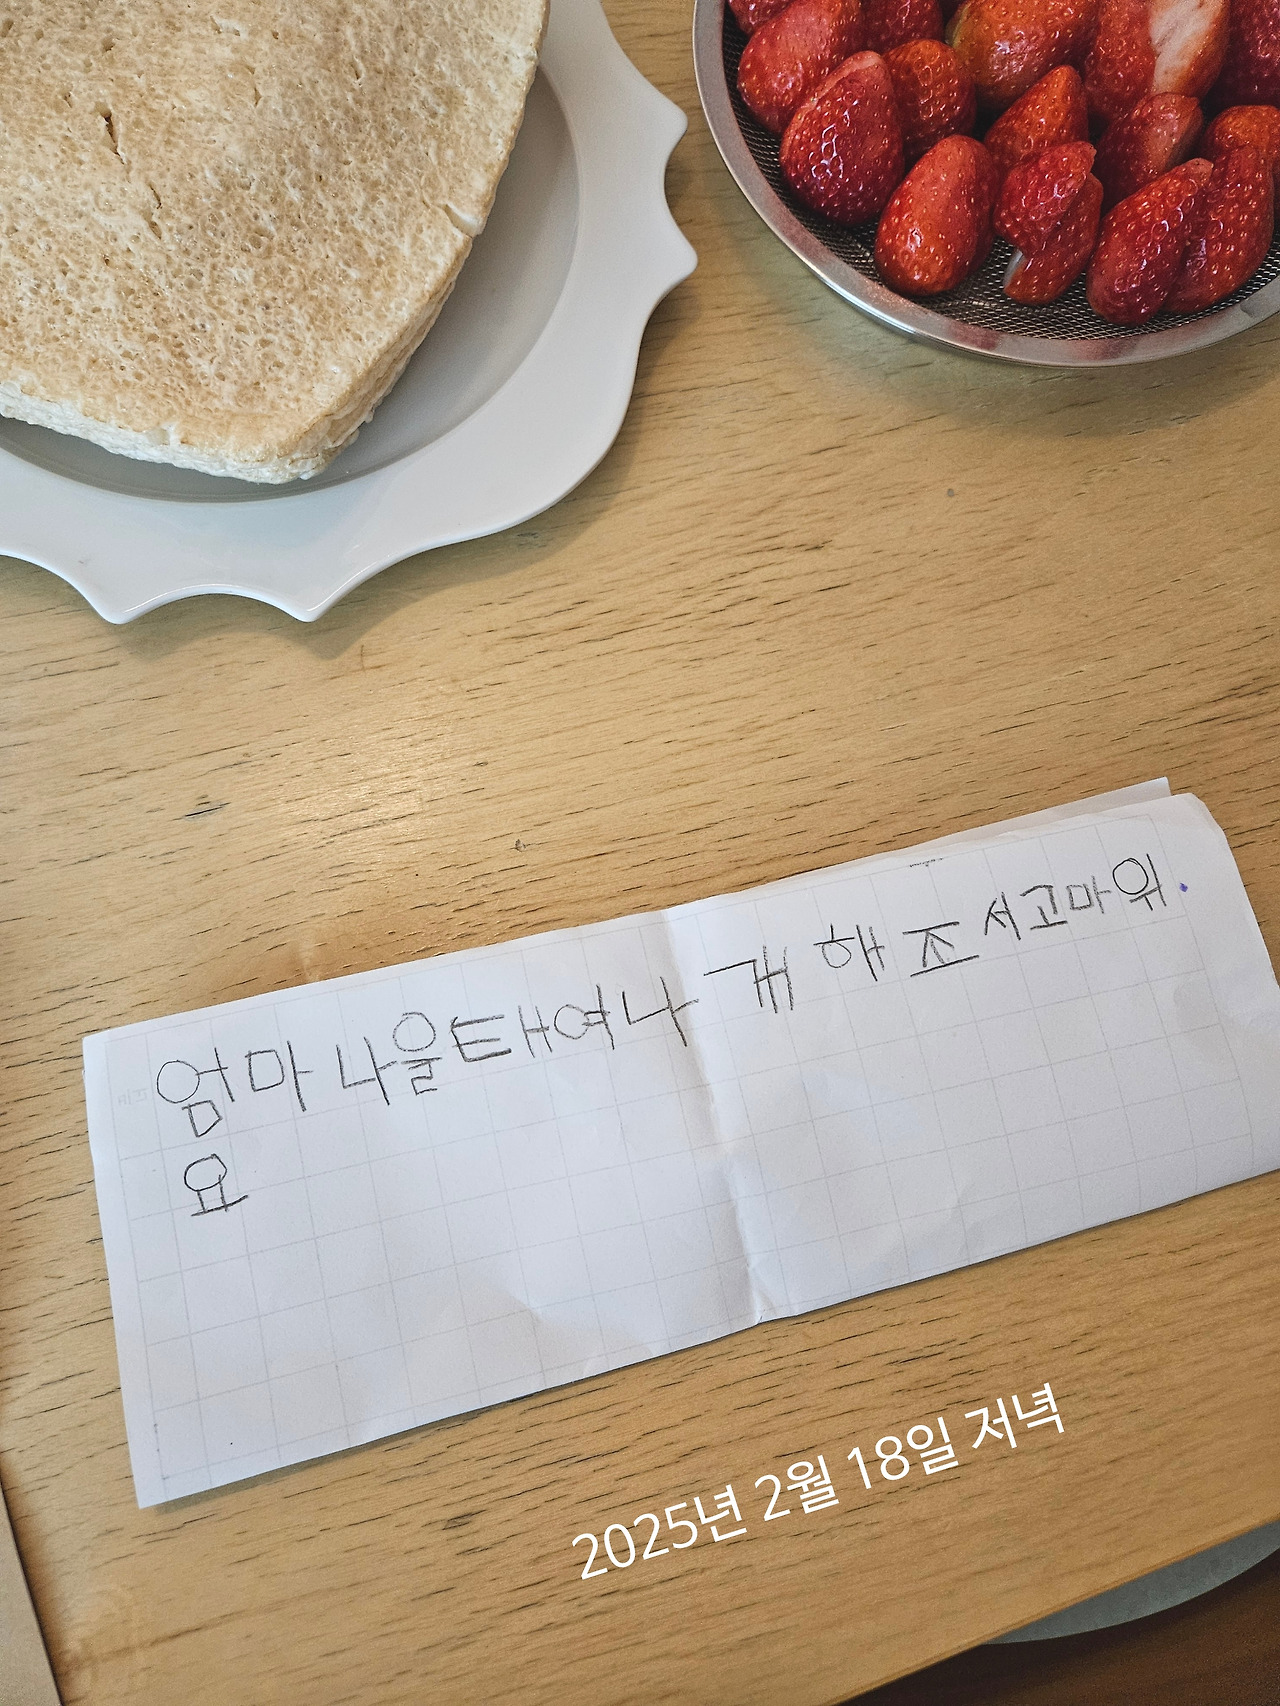 엄마 나을태여나 개 해 조 서고마워.
요
2025년 2월 18일 저녁